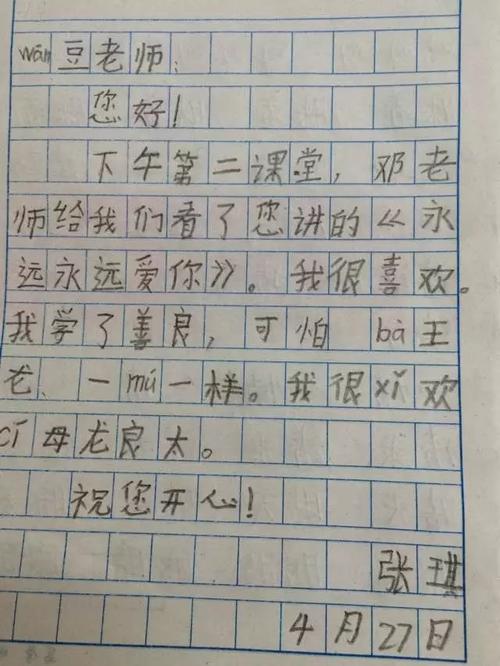 wān豆老师:
您好!
下午第二课堂,邓老
师给我们看了您讲的《永
远永远爱你》。我很喜欢。
我学了善良,可怕 bà王
龙、一mú一样。我很xǐ欢
cí母龙良太。
祝您开心!
张琪
4月27日